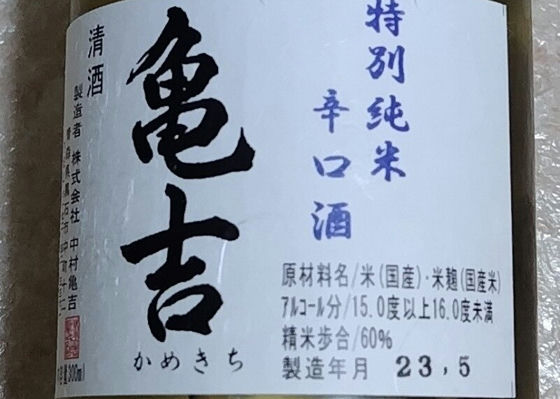 特別純米
辛口酒
亀吉
かめきち
清酒
製造者 株式会社 中村亀吉
青森県黒石市中町十二
原材料名/米(国産)・米麹(国産米)
アルコール分/15.0度以上16.0度未満
精米歩合/60%
製造年月 23,5
300ml